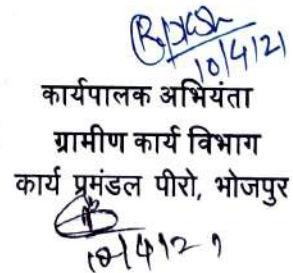 10/4/21
कार्यपालक अभियंता
ग्रामीण कार्य विभाग
कार्य प्रमंडल पीरो, भोजपुर
10/4/21